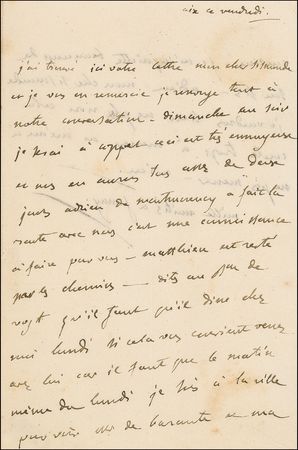 aix ce vendredi.
j'ai trouvé ici votre lettre mon cher Sismondi
et je vous en remercie je songe tout à
notre conversation - dimanche au soir
je serai à coppet ceci est très ennuyeux
et nous en aurons tous assez de deux
jours adrien de montmorency a fait la
route avec nous c'est une connaissance
à faire pour vous - matthieu est resté
par les chemins - dites au de
voght qu'il faut qu'il dîne chez
moi lundi si cela vous convient venez
avec lui car il faut que le matin
même du lundi je sois à la ville
pour voir Mr de barante et ma